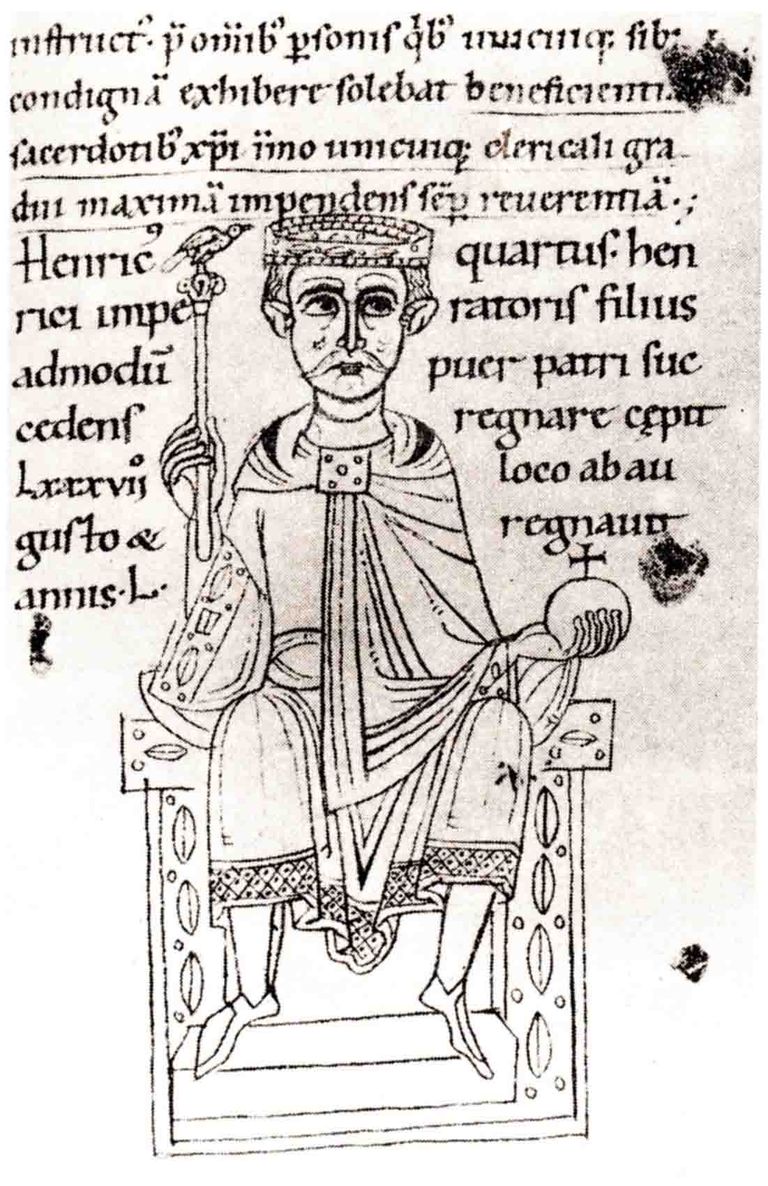 inſtruct᷒· p̄ om̄ibꝰ ꝑſoniſ qͥbꝰ unicuiq; ſibi
condignā exhibere ſolebat beneficientia
ſacerdotibꝰ xp̄i īmo unicuiq; clericali gra
dui maximā impendenſ ſēp reuerentiā·;
Henricꝰ quartuſ· hen
rici impe ratoriſ filius
admodū puer patri ſuc
cedenſ regnare cępit
Lxxxvıı̊ loco ab au
guſto & regnauit
annis·L·